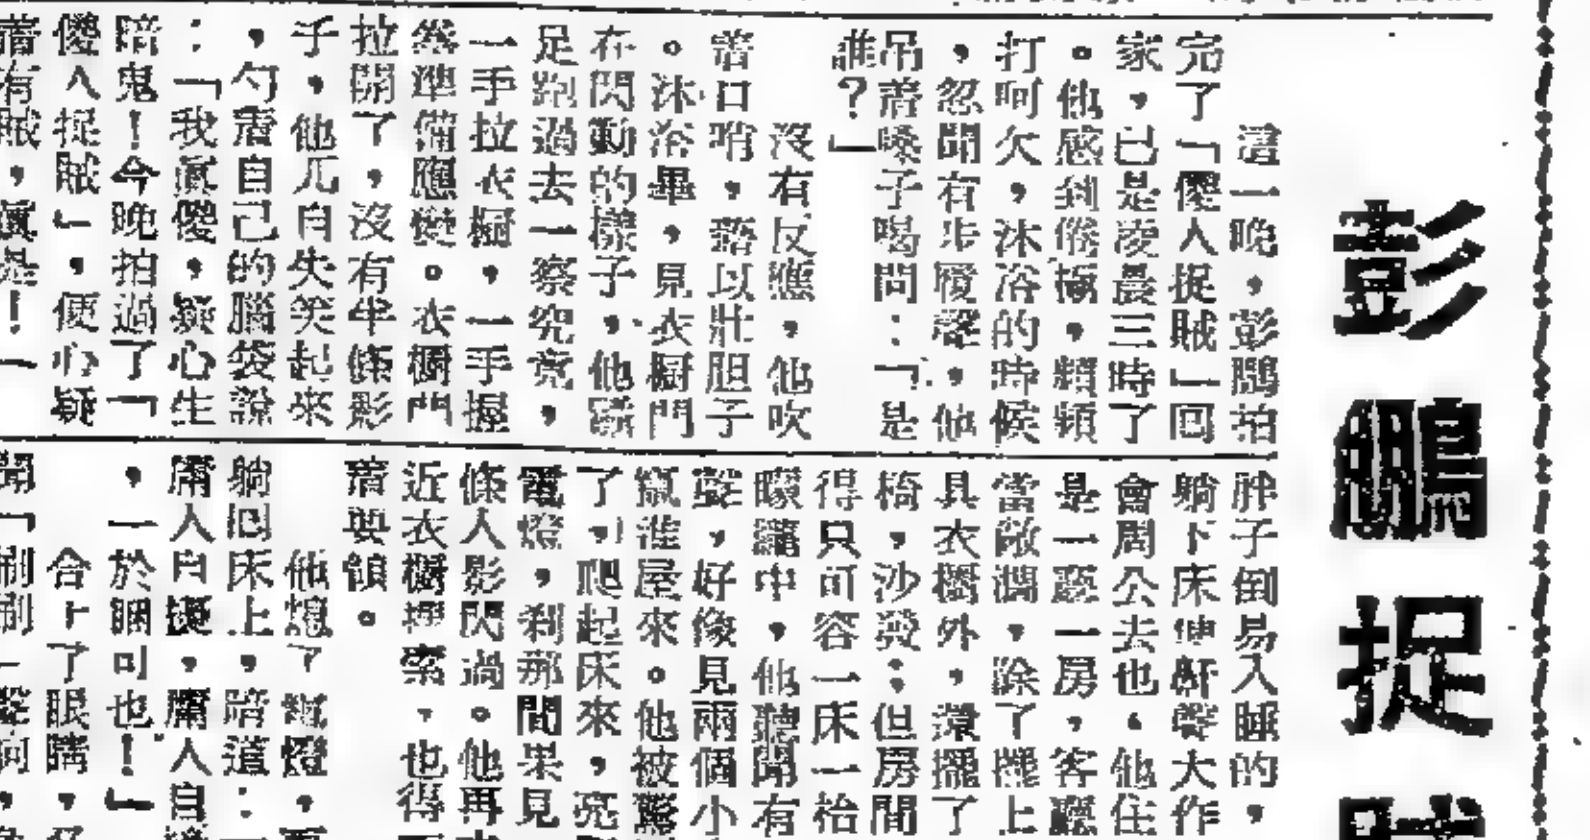 彭鵬捉賊
這一晚，彭鵬拍
完了「傻人捉賊」回
家，已是凌晨三時了
。他感到倦極，頻頻
打呵欠，沐浴的時候
，忽聞有步履聲，他
吊着嗓子喝問：「是
誰？」
沒有反應，他吹
着口哨，藉以壯胆子
。沐浴畢，見衣橱門
在閃動的樣子，他
足跑過去一察究竟，
一手拉衣橱，一手握
拳準備應變。衣橱門
拉開了，沒有半條影
子，他兀自失笑起來
，勺着自己的腦袋說
：「我眞傻，疑心生
暗鬼！今晚拍過了「
傻人捉賊」，便心疑
着有賊，眞是！」
胖子倒易入睡的，
躺下床便鼾聲大作
會周公去也。他住
是一廳一房，客廳
當敞濶，除了擺上
具衣橱外，還擺了
椅，沙發；但房間
得只可容一床一枱
矇矓中，他聽聞有
聲，好像見兩個小
竄進屋來。他被驚
了，爬起床來，亮
電燈，刹那間果見
條人影閃過。他再
近衣橱搜索，也得
着要領。
他熄了電燈，再
躺回床上，暗道：
庸人自擾，庸人自
，一於睏可也！」
合上了眼睛，
聞「刷刷」聲